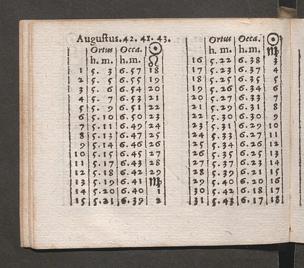 Augustus. 42. 41. 43.
Ortus Occa. ☉
h. m. h. m. ♌
1 5. 3 6. 57 18
2 5. 5 6. 55 19
3 5. 6 6. 54 20
4 5. 7 6. 53 21
5 5. 9 6. 51 22
6 5. 10 6. 50 23
7 5. 11 6. 49 24
8 5. 13 6. 47 25
9 5. 14 6. 46 26
10 5. 15 6. 45 27
11 5. 17 6. 43 28
12 5. 18 6. 42 29
13 5. 19 6. 41 ♍
14 5. 20 6. 40 1
15 5. 21 6. 39 2
Ortus Occa. ☉
h. m. h. m. ♍
16 5. 22 6. 38 3
17 5. 23 6. 37 4
18 5. 25 6. 35 5
19 5. 26 6. 34 6
20 5. 27 6. 33 7
21 5. 29 6. 31 8
22 5. 30 6. 30 9
23 5. 31 6. 29 10
24 5. 33 6. 27 11
25 5. 34 6. 26 12
26 5. 35 6. 25 13
27 5. 37 6. 23 14
28 5. 38 6. 22 15
29 5. 40 6. 20 16
30 5. 42 6. 18 17
31 5. 43 6. 17 18